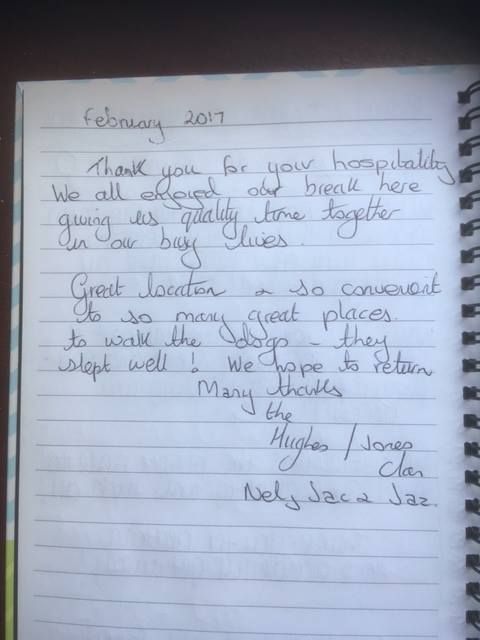 February 2017
Thank you for your hospitality
We all enjoyed our break here
giving us quality time together
in our busy lives.
Great location & so convenient
to so many great places.
to walk the dogs - they
slept well! We hope to return
Many thanks
the
Hughes / Jones
Clan
Nel, Jac & Jaz.